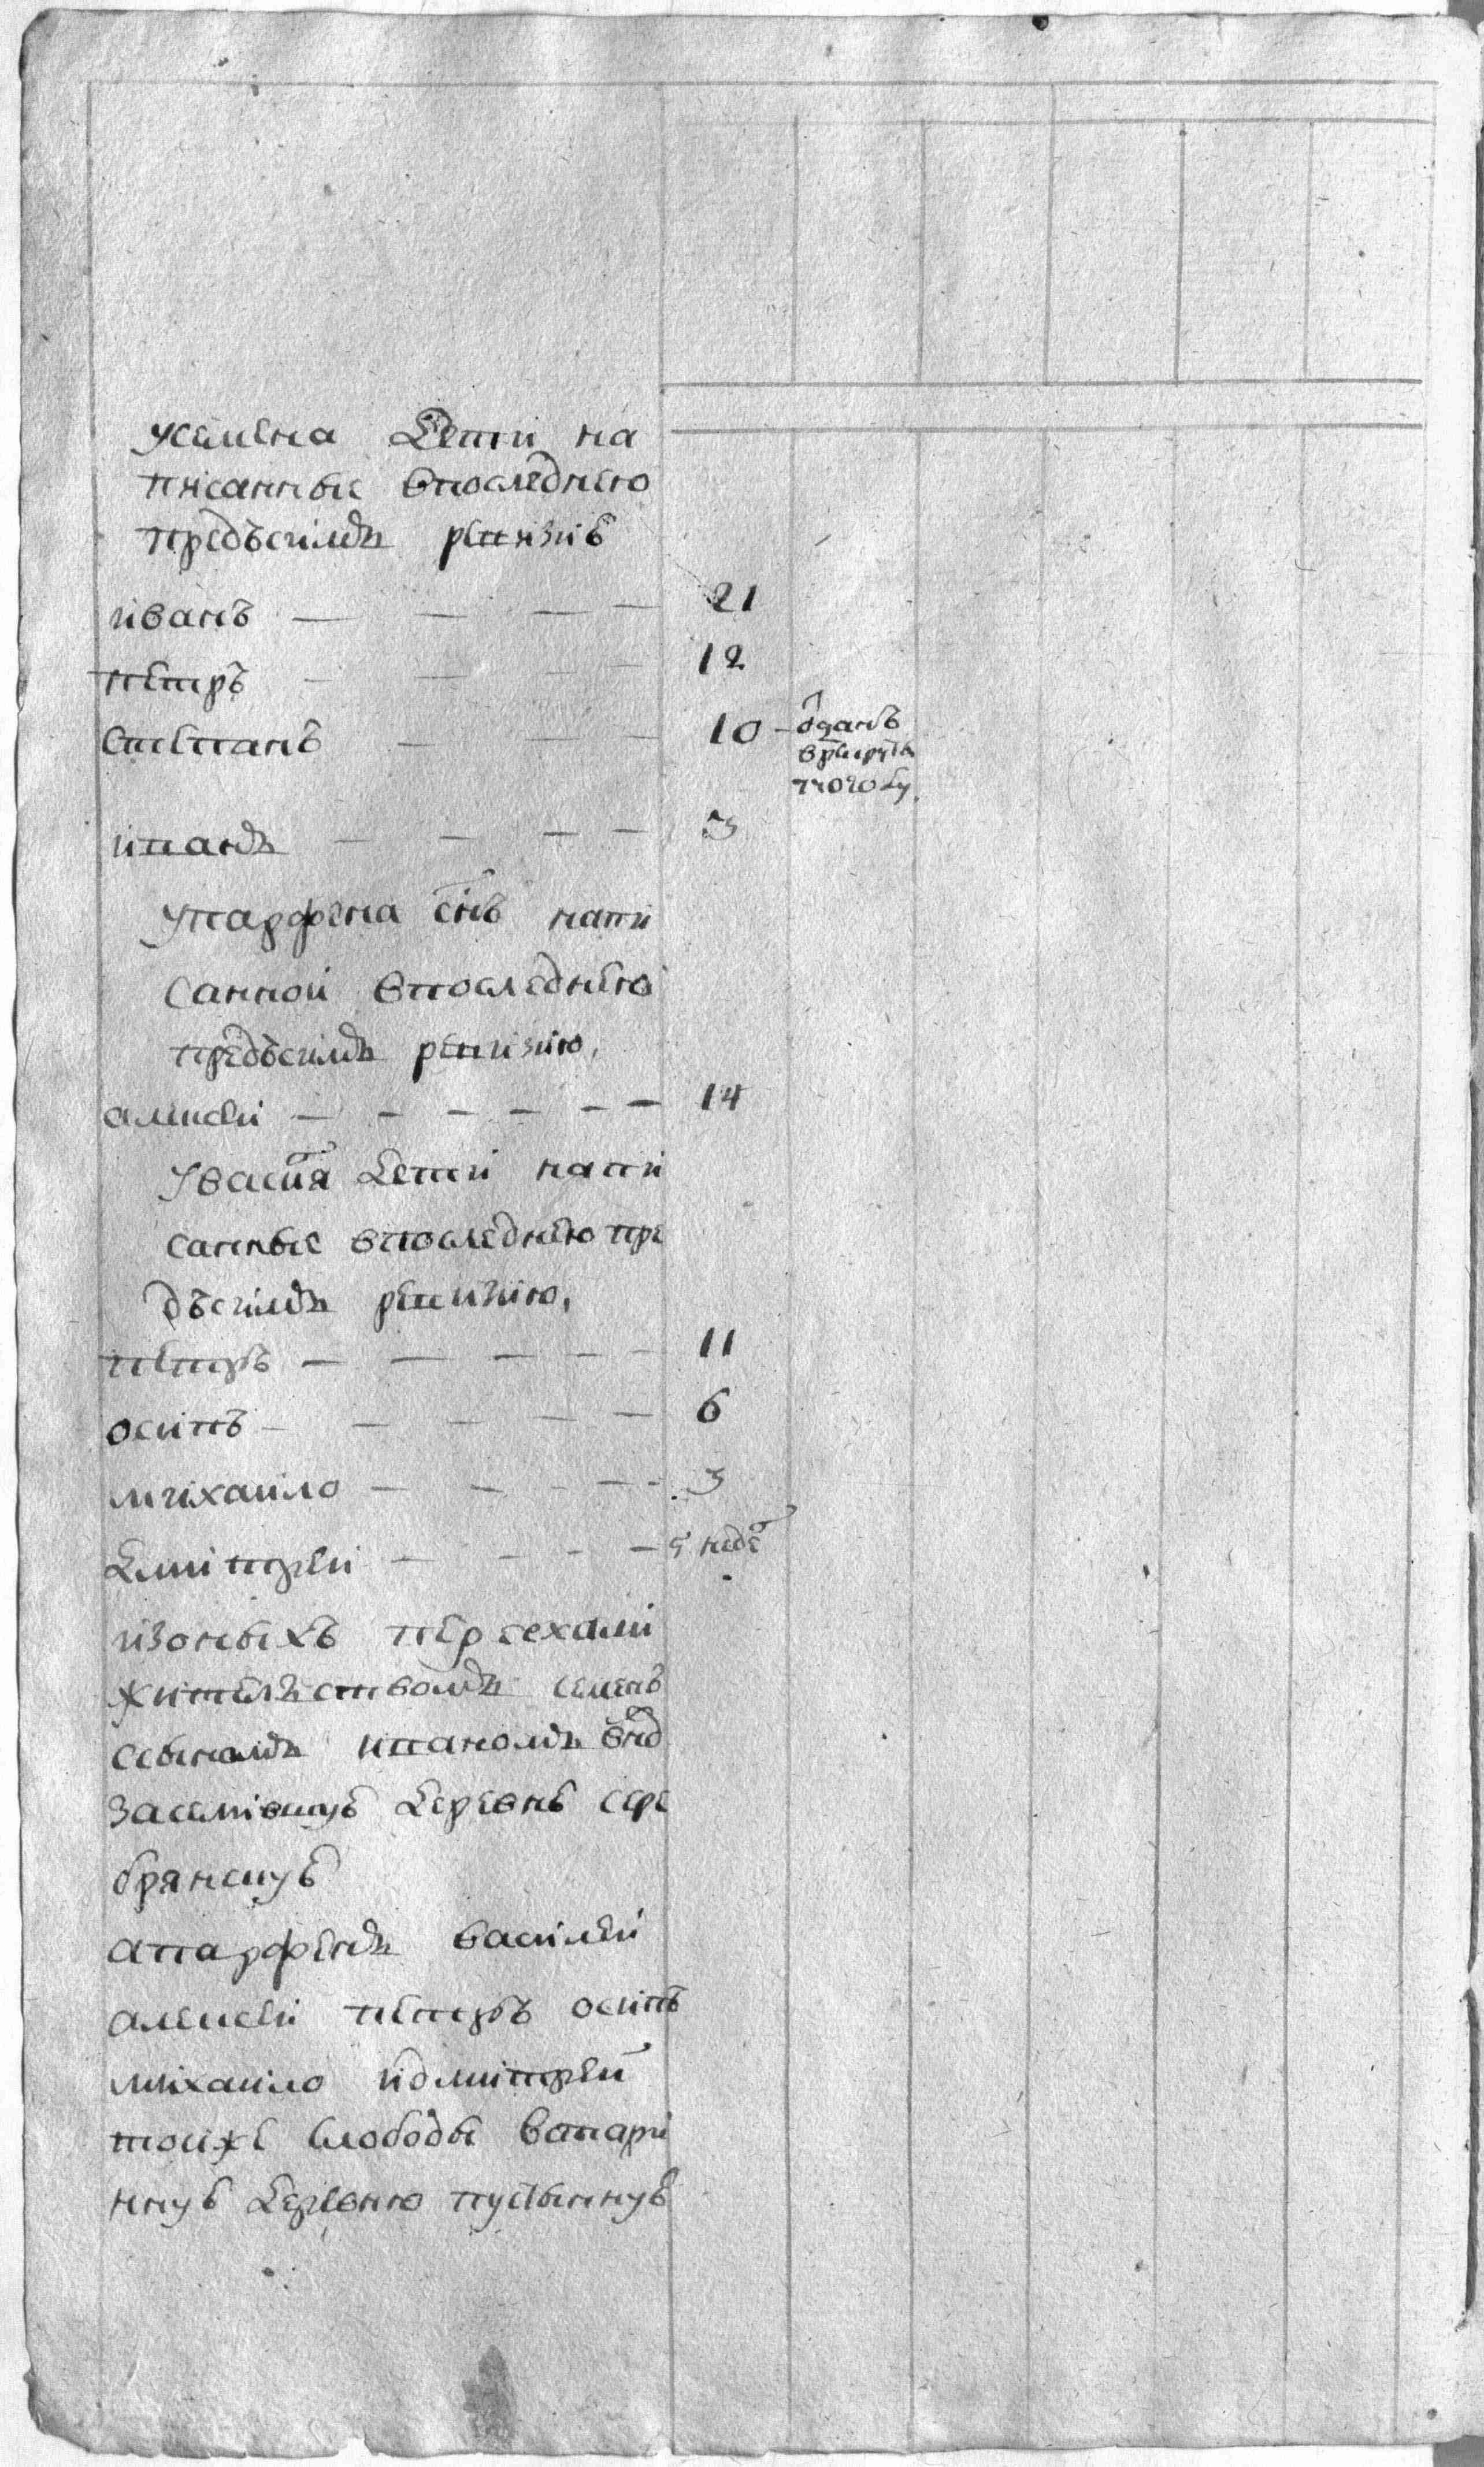 усемена дети на
писанные впоследнею
предъсимъ ревизиѣ
иванъ — — — — 21
петръ — — — 12
степанъ — — — 10 – ѿданъ
врекруты
1780 году
иванъ — — — — 3
упарфена снъ напи
санной впоследнею
предъсимъ ревизию,
алексей — — — — — — 14
Увасиля дети напи
санные впоследнею пре
дъсимъ ревизию,
петръ — — — — — 11
осипъ — — — — 6
михаило — — — — — 3
дмитрей — — — — 5 неде
изоныхъ переехали
жителствомъ семенъ
сыномъ иваномъ вно
заселившуѣ деревнѣ сере
брянскуѣ
апарфенъ василей
алексей петръ осипъ
михаило идмитрей
тоиже слободы встари
ннуѣ деревню пустыннуѣ